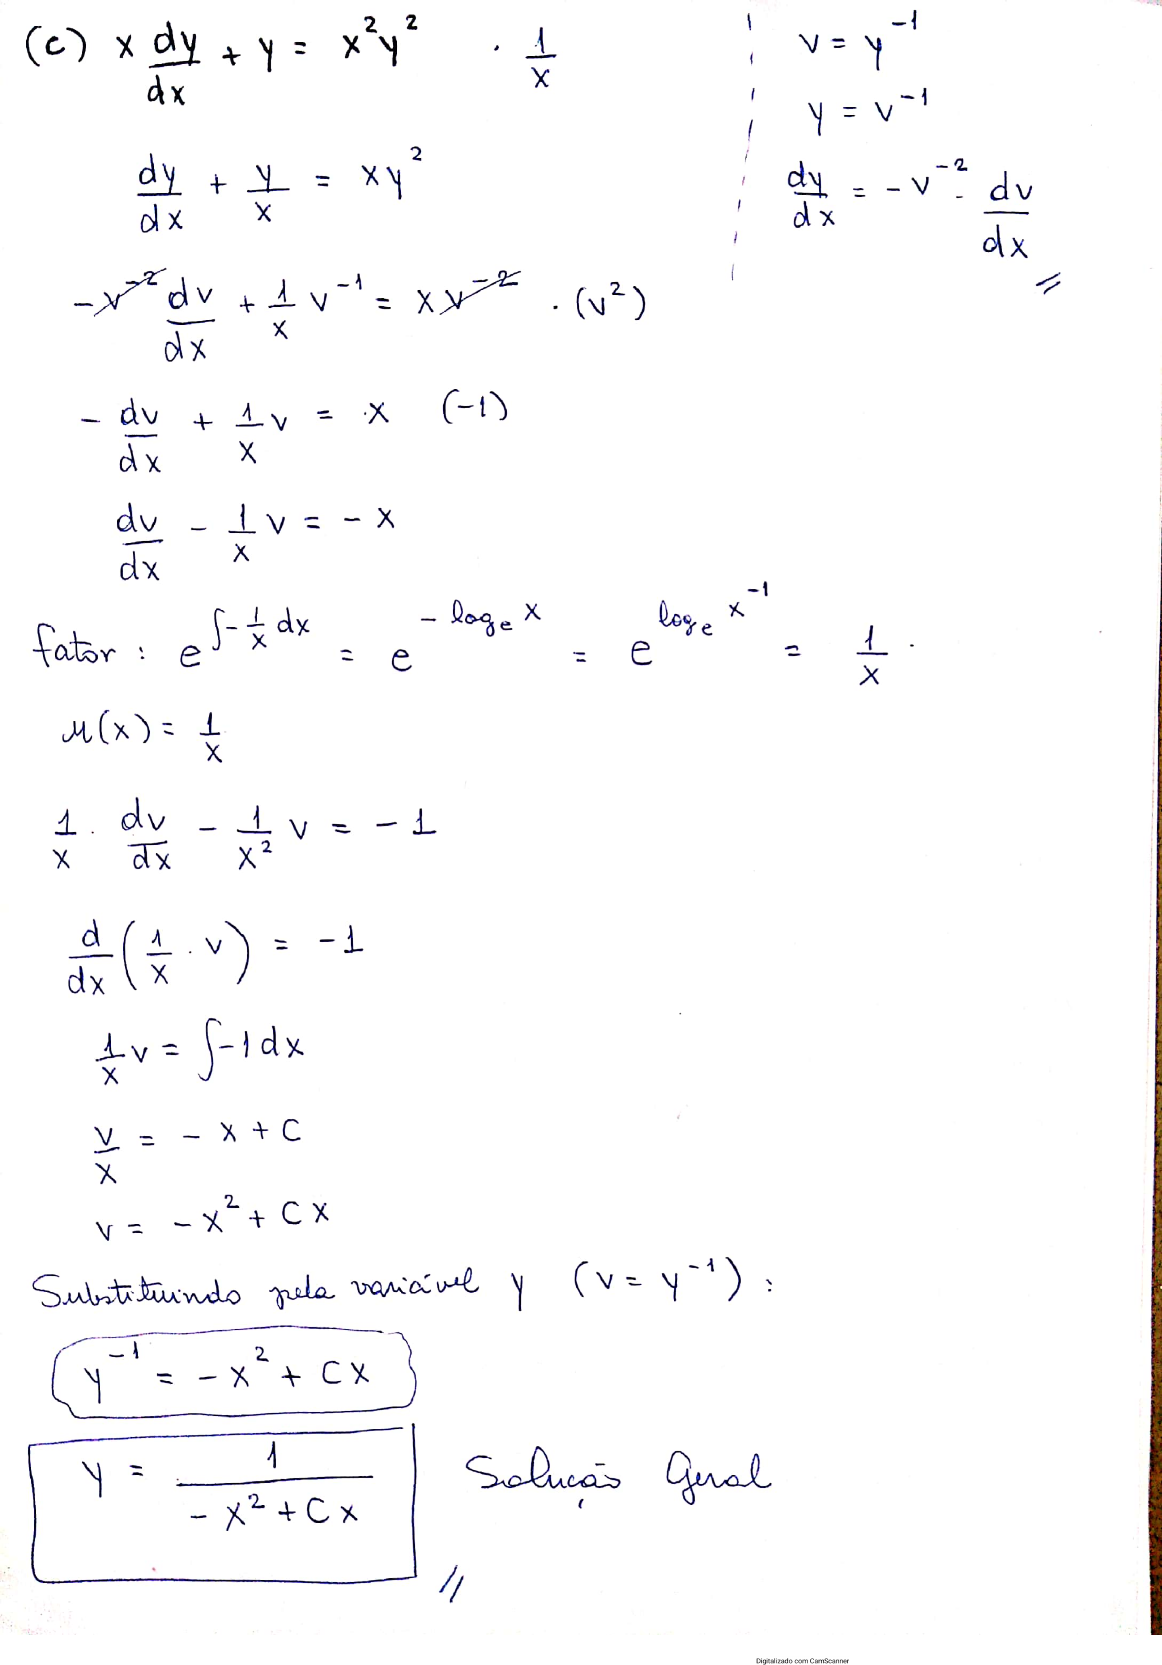 (c) x dy/dx + y = x²y² · 1/x
dy/dx + y/x = xy²
-v⁻² dv/dx + 1/x v⁻¹ = x v⁻² · (v²)
- dv/dx + 1/x v = x (-1)
dv/dx - 1/x v = - x
v = y⁻¹
y = v⁻¹
dy/dx = - v⁻² · dv/dx //
fator : e^(∫ - 1/x dx) = e^(- logₑ x) = e^(logₑ x⁻¹) = 1/x .
μ(x) = 1/x
1/x · dv/dx - 1/x² v = - 1
d/dx (1/x · v) = - 1
1/x v = ∫ -1 dx
v/x = - x + C
v = - x² + C x
Substituindo pela variável y (v = y⁻¹) :
y⁻¹ = - x² + C x
y = 1/(- x² + C x) Solução Geral
//
Digitalizado com CamScanner